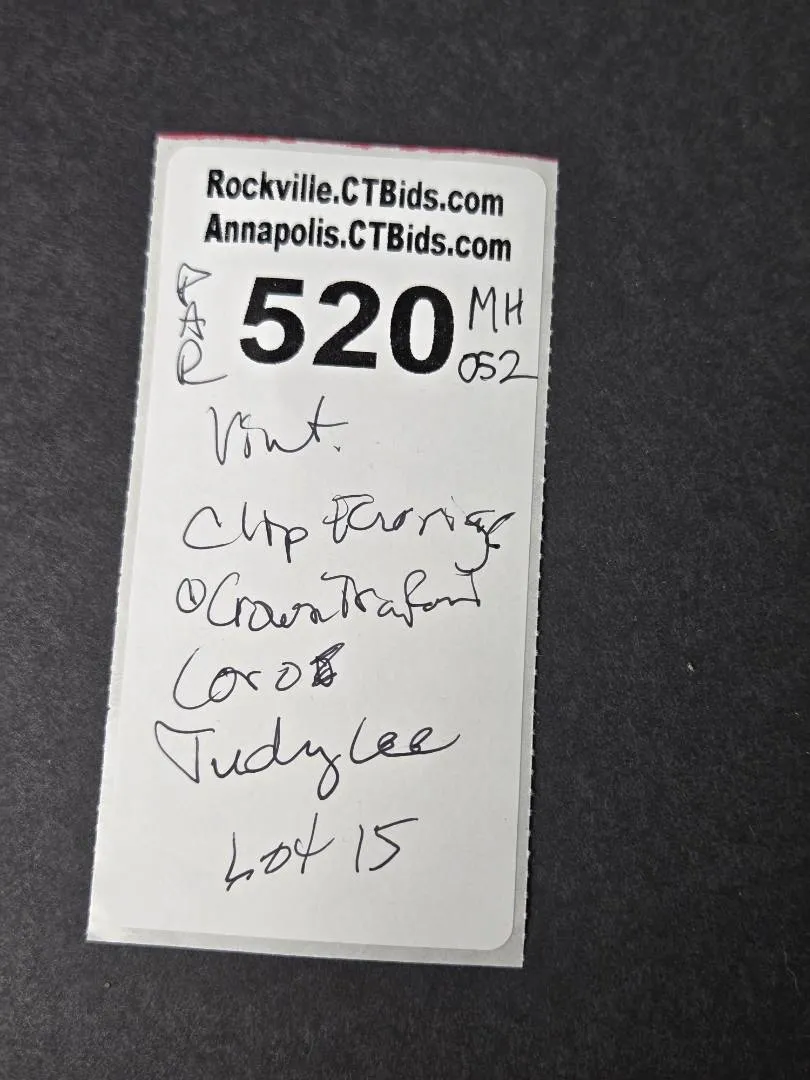 Rockville.CTBids.com
Annapolis.CTBids.com
520
MH
052
Vint.
Clip Earrings
① Crown Trafari
Coro
Judy Lee
Lot 15